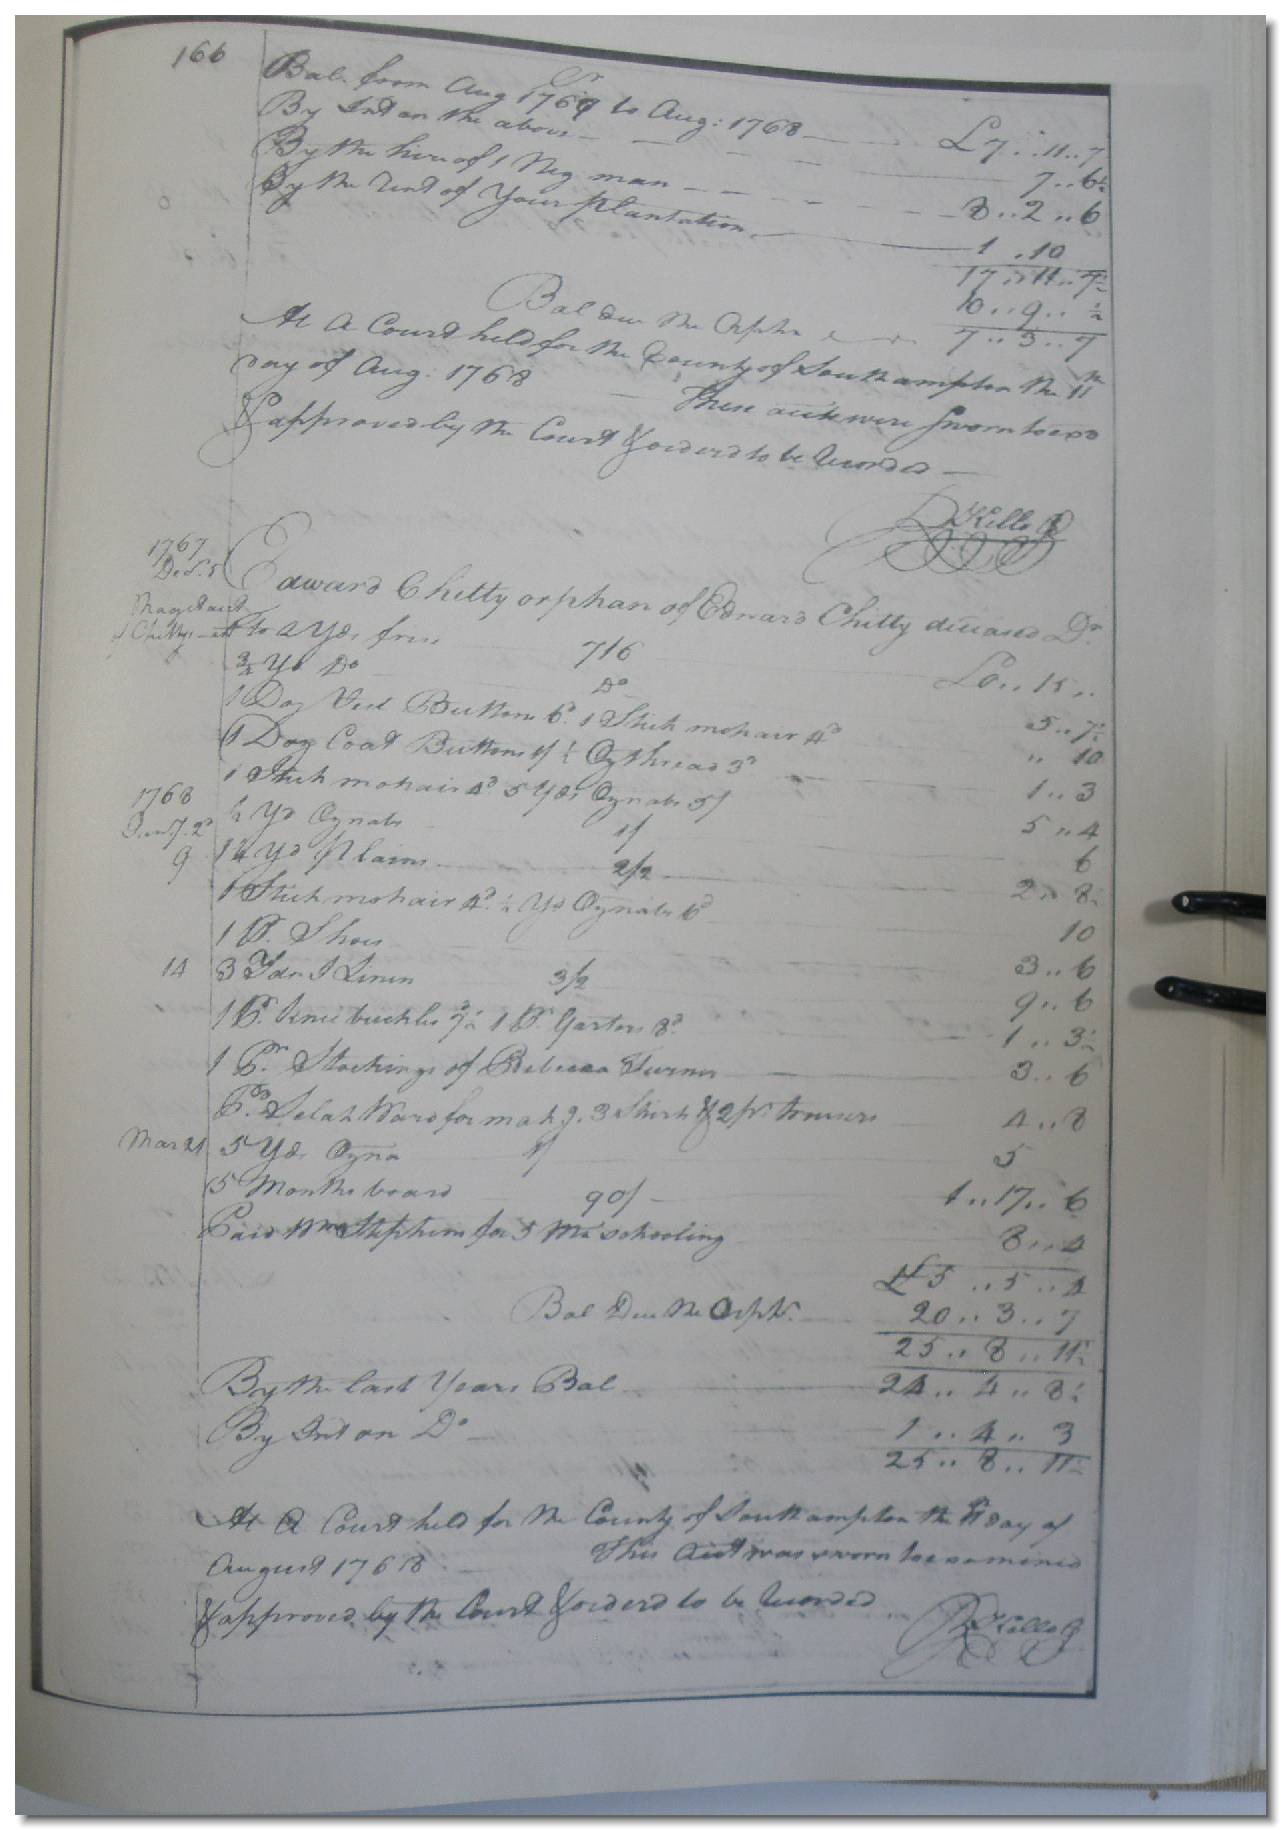 166
Cr
Bal. from Aug 1767 to Aug: 1768 £7..11..7
By Int on the above 7..6½
By the hire of 1 Neg man 8..2..6
By the Rent of Your Plantation 1..10
17..11..7½
10..9..½
Bal due the Orphn 7..3..7
At A Court held for the County of Southampton the 11th
day of Aug: 1768 These acots were sworn to exd
& approved by the Court & orderd to be Recorded
R Kello
1767
Decr. 5
Edward Chitty orphan of Edward Chitty deceased Dr
Chittys
to 2 Yds frize 7/6 £0..15..
¾ Yd Do Do 5..7½
1 Doz Vest Buttons 6d. 1 Stick mohair 4d " 10
1 Doz Coat Buttons 1/ ½ Oz thread 3d 1..3
1 Stick mohair 4d 5 Yds Oznabs 5/ 5..4
1768
½ Yd Oznabs 1/ 6
9 1¼ Yd Plains 2/2 2..8½
1 Stick mohair 4d. ½ Yd Oznabs 6d 10
1 Pr. Shoes 3..6
14 3 Yds I Linen 3/2 9..6
1 Pr. Knee buckles 7½d 1 Pr. Garters 8d. 1..3½
1 Pr. Stockings of Rebecca Turner 3..6
Pd. Selah Ward for makg. 3 Shirts & 2 pr. trousers 4..8
Mar 21 5 Yds Ozna 1/ 5
5 Months board 90/ 1..17..6
Paid Wm Stephens for 5 Ms schooling 8..4
£5..5..4
Bal Due the Orphn. 20..3..7
25..8..11½
By the last Years Bal 24..4..8½
By Int on Do 1..4..3
25..8..11½
At A Court held for the County of Southampton the 11th day of
August 1768 This acot was sworn to examined
& approved by the Court & orderd to be Recorded
R Kello